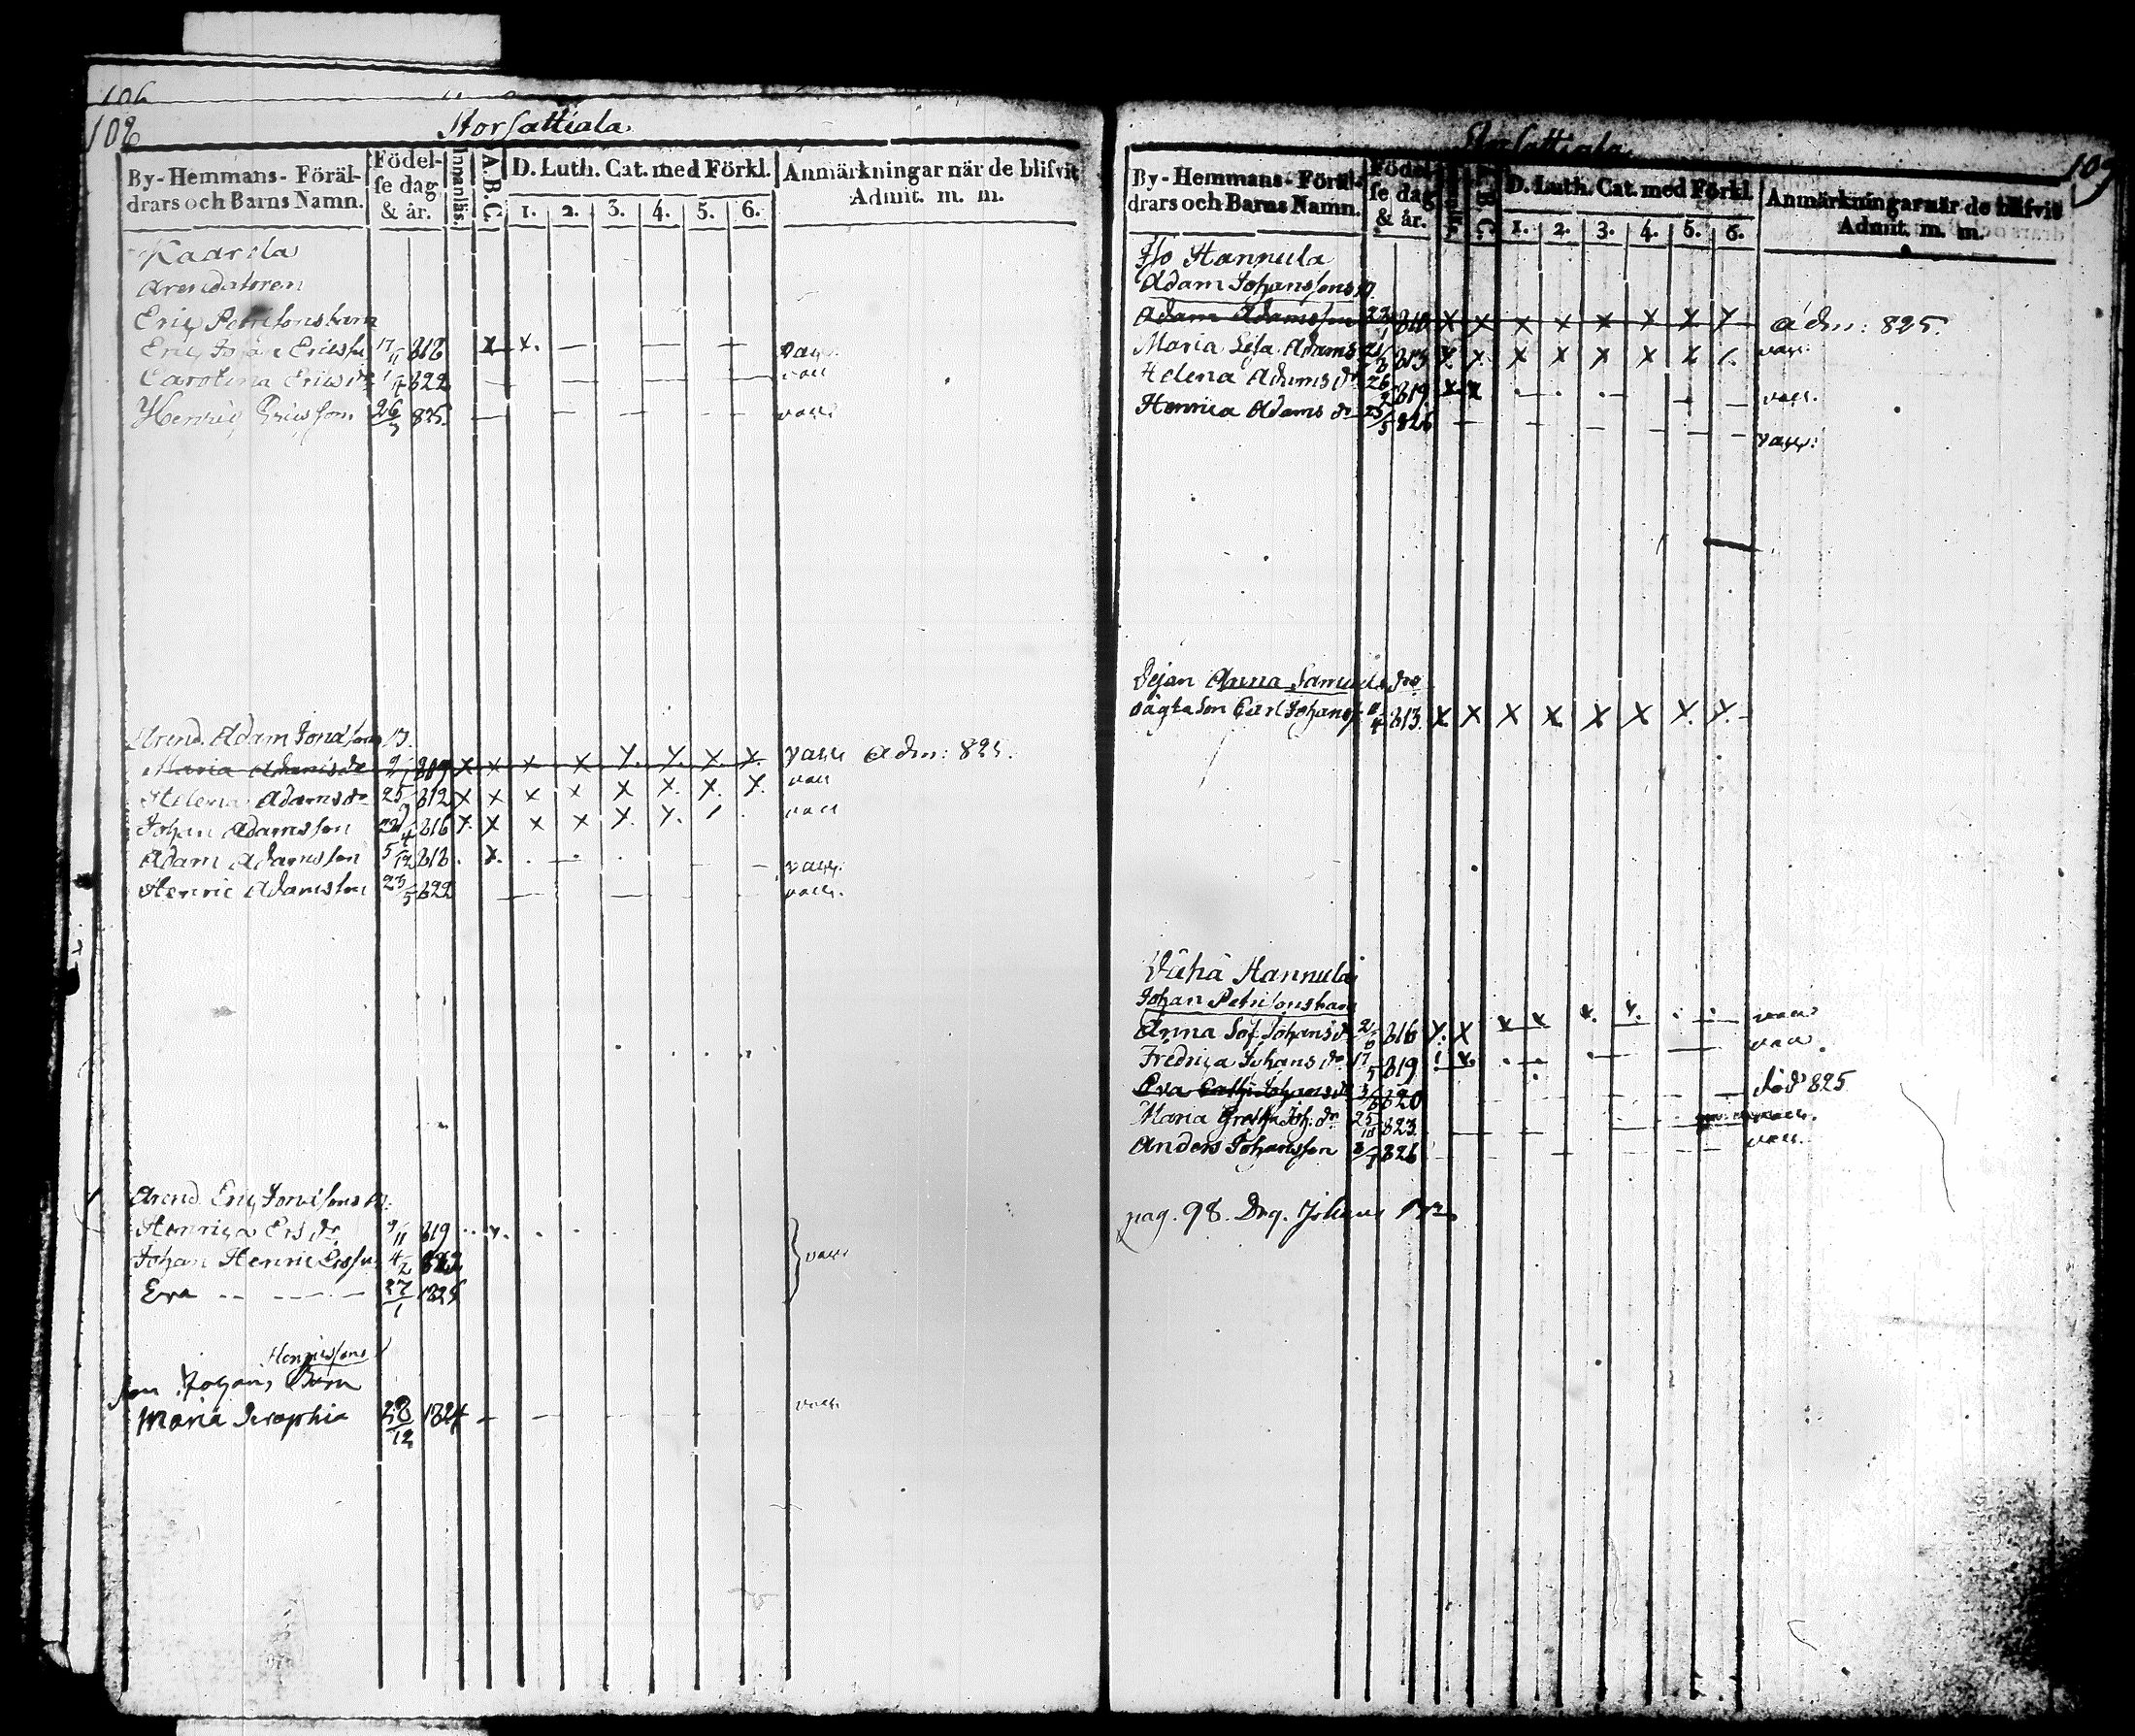 106
108
Storsattiala.
By-Hemmans-Föräl-
drars och Barns Namn.
Födel-
se dag
& år.
Innanläs.
A.B.C.
D. Luth. Cat. med Förkl.
1. 2. 3. 4. 5. 6.
Anmärkningar när de blifvit
Admit. m. m.
Kaarela
Arendatoren
Eric Petrisons barn
Eric Johan Ericss. 17/11 818 x x. — — — vacc.
Carolina Ericsdr 822 — — — — vacc
Henric Ericsson 26/7 825. — — — — vacc
Arend. Adam Jonassons b.
Maria Adamsdr 809 x x x x x. x. x. x. vacc Adm: 825.
Helena Adamsdr 25/9 812 x x x x x x. x. x. vacc
Johan Adamsson 816 x. x x x x. x. vacc
Adam Adamsson 5/12 818 . x. vacc.
Henric Adamsson 23/5 822 — — — vacc.
Arend. Eric
Henrica Ersdr 9/11 819
Johan Henric Erss. 4/2 822 vacc
Eva 27/1 1825
Henricssons
Johans Barn
Maria Seraphia 28/12 1824 — — vacc
109
Storsattiala.
By-Hemmans-Föräl-
drars och Barns Namn.
Födel-
se dag
& år.
D. Luth. Cat. med Förkl.
1. 2. 3. 4. 5. 6.
Anmärkningar när de blifvit
Admit. m. m.
Iso Hannula
Adam Johanssons b.
Adam Adamsson 810 x x x x x x x x Adm: 825.
Maria Lisa Adamsdr 813 x x. x x x x x vacc
Helena Adamsdr 26 819 x x vacc.
Henrica Adamsdr 25/5 826 — — — vacc.
Pejan Anna Samuelsdrs
oägta son Carl Johan 813 x x x x x x x. x.
Vähä Hannula
Johan Petrisons barn
Anna Sof. Johansdr 816 x. x x x x. x. vacc
Fredrica Johansdr 17/5 819 vacc.
Eva Cath. Johansdr 820 död 825
Maria Greta Joh. dr 25/10 823 — — vacc.
Anders Johansson 826 vacc.
pag. 98. Drg. Johans